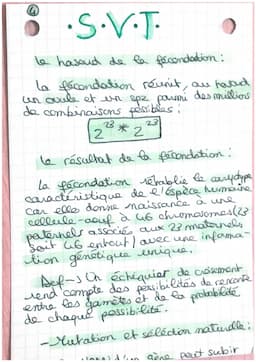 ④
• S.V.T.
Le hasard de la fécondation :
La fécondation réunit, au hasard
un ovule et un spz parmi des millions
de combinaisons possibles :
2^23 * 2^23
Le résultat de la fécondation :
La fécondation rétablie le caryotype
caractéristique de l'espèce humaine
car elle donne naissance à une
cellule-oeuf à 46 chromosomes (23
paternels associés aux 23 maternels
soit 46 en tout) avec une informa-
tion génétique unique.
Def -> Un échiquier de croisement
rend compte des possibilités de rencontre
entre les gamètes et de la probabilité
de chaque possibilité.
- Mutation et sélection naturelle :
d'un gène peut subir